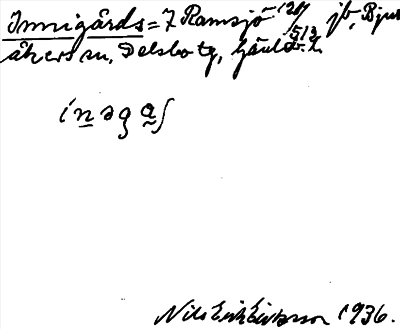 Innigårds = 7 Ramsjö 128/513 jb, Bjur
åkers sn, Delsbo tg, Gävleb. l.
i n ə g a ʃ
Nils Erik Eriksson 1936.